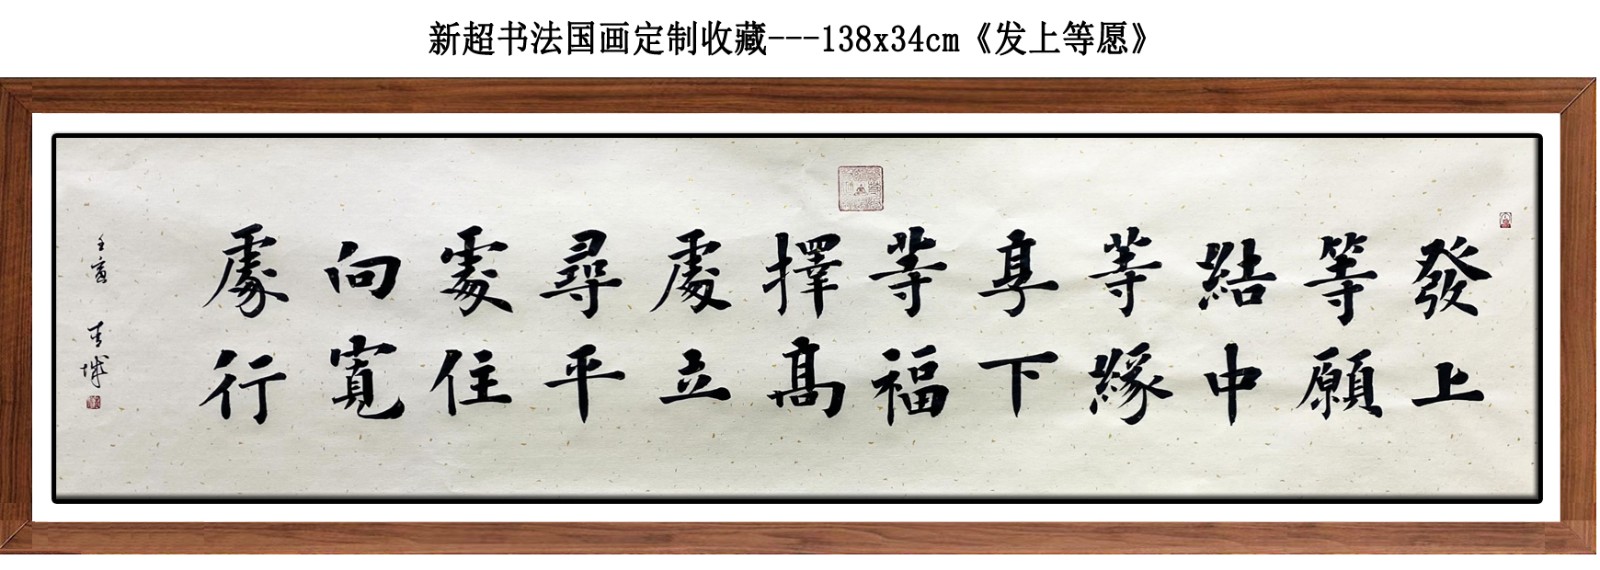 新超书法国画定制收藏---138x34cm《发上等愿》
發上
等願
結中
等緣
享下
等福
擇高
處立
尋平
處住
向寬
處行
壬寅